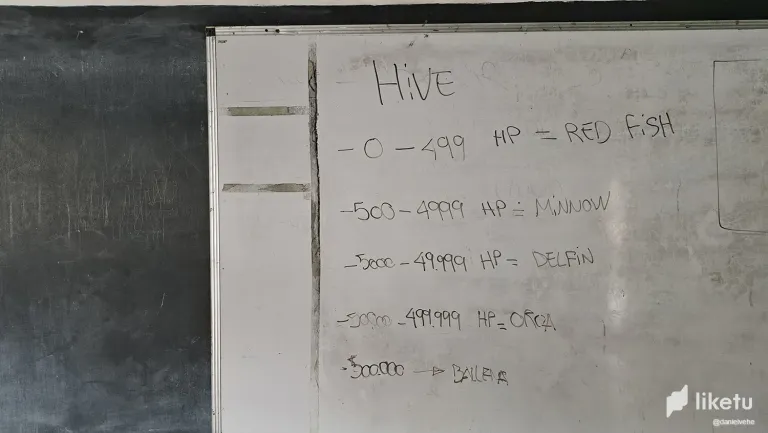 HiVE
- 0 - 499 HP = RED FiSH
- 500 - 4999 HP = MiNNOW
- 5000 - 49.999 HP = DELFiN
- 50.000 - 499.999 HP = ORCA
- 500.000 → BALLENA
liketu
@danielvehe